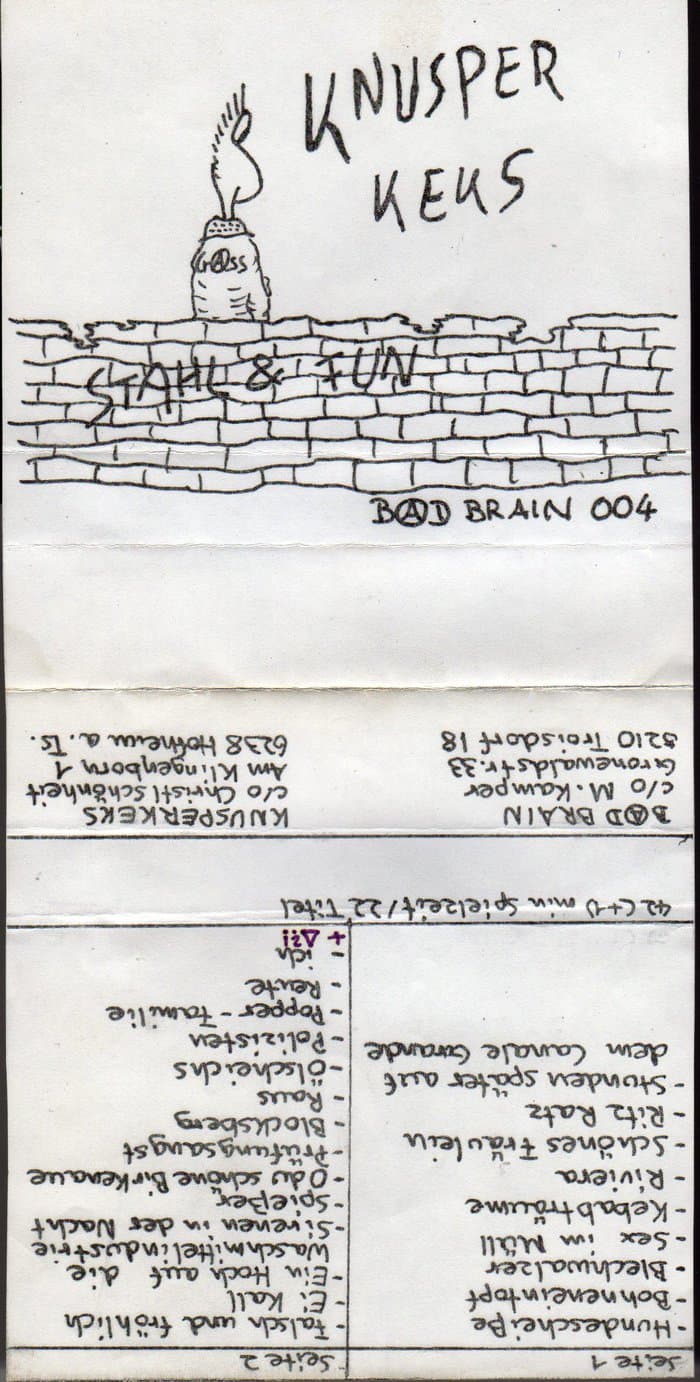 KNUSPER
KEKS
GASS
STAHL & FUN
BAD BRAIN 004
Seite 1
- Hundescheiße
- Bohneneintopf
- Blechwalzer
- Sex im Müll
- Kebabträume
- Riviera
- Schönes Fräulein
- Ritz Ratz
- Stunden später auf
dem Canale Grande
Seite 2
- Falsch und fröhlich
- Ei Kall
- Ein Hoch auf die
Waschmittelindustrie
- Sirenen in der Nacht
- Spießer
- O du schöne Birkenaue
- Prüfungsangst
- Blocksberg
- Raus
- Ölscheichs
- Polizisten
- Popper-Familie
- Rente
- ich
42 (+1) min Spielzeit/22 Titel
BAD BRAIN
c/o M. Kamper
Gronewaldstr.33
5210 Troisdorf 18
KNUSPERKEKS
c/o Christl Schönheit
Am Klingenborn 1
6238 Hofheim a. Ts.